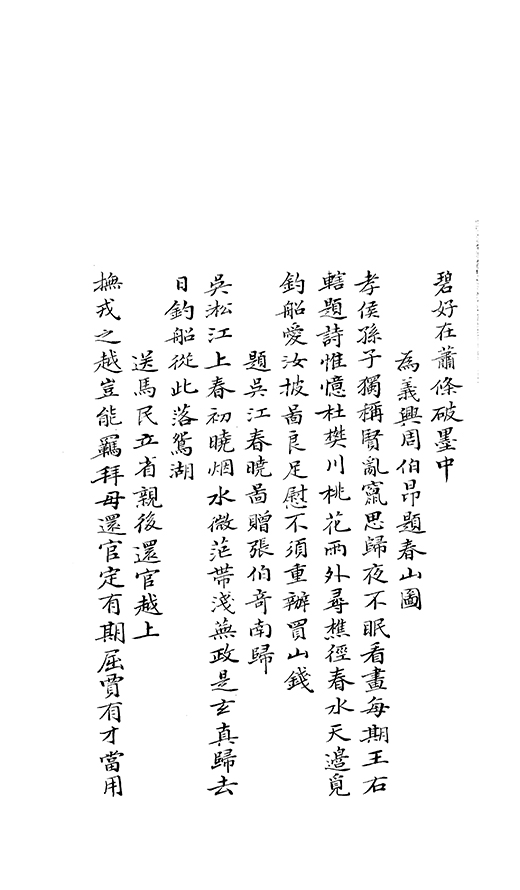 碧好在蕭條破墨中
為義興周伯昂題春山圖
孝侯孫子獨稱賢亂竄思歸夜不眠看畫每期王右
轄題詩惟憶杜樊川桃花雨外尋樵徑春水天邉覓
釣船愛汝披啚良足慰不須重辦買山錢
題吳江春曉啚贈張伯竒南歸
吳淞江上春初曉烟水微茫帶淺蕪政是玄真歸去
日釣船從此落鴛湖
送馬民立省親後還官越上
撫戎之越豈能羈拜母還官定有期屈賈有才當用